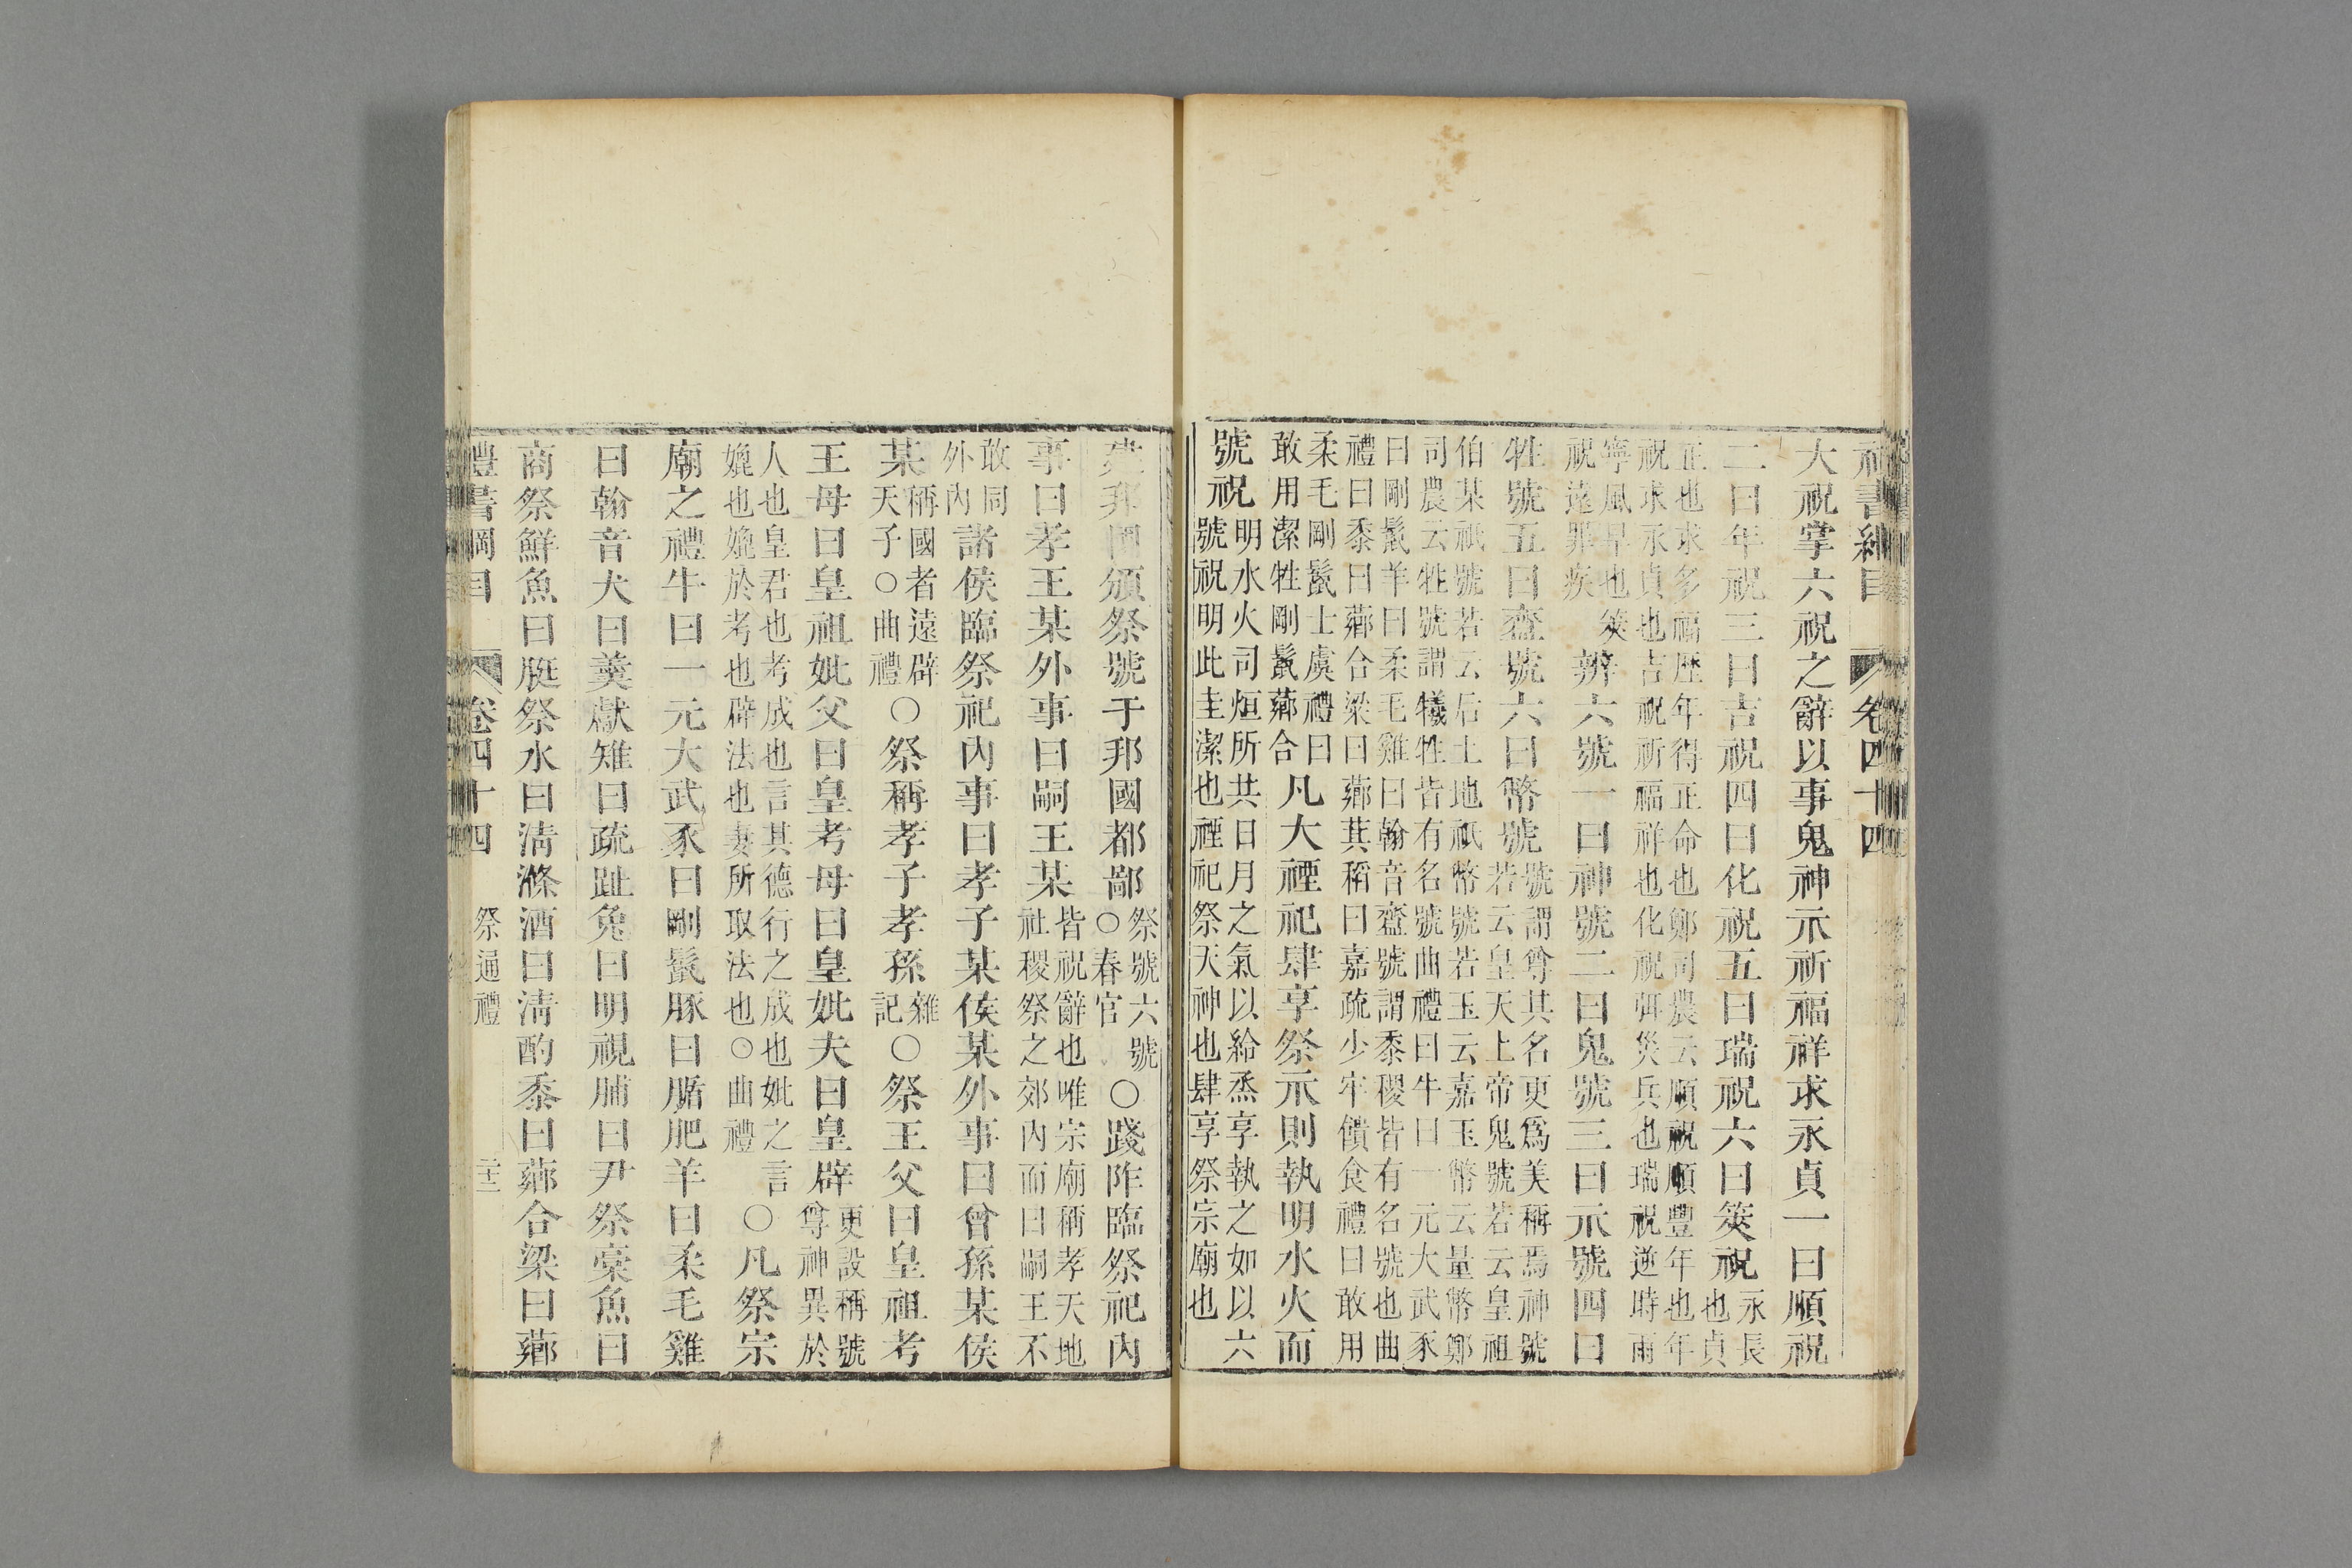 禮書綱目　卷四十四
大祝掌六祝之辭以事鬼神示祈福祥求永貞一曰順祝
二曰年祝三曰吉祝四曰化祝五曰瑞祝六曰筴祝永長也貞
正也求多福歷年得正命也鄭司農云順祝順豐年也年
祝求永貞也吉祝祈福祥也化祝弭災兵也瑞祝逆時雨
寧風旱也筴祝遠罪疾辨六號一曰神號二曰鬼號三曰示號四曰
牲號五曰齍號六曰幣號號謂尊其名更爲美稱焉神號若云皇天上帝鬼號若云皇祖
伯某祇號若云后土地祇幣號若玉云嘉玉幣云量幣鄭
司農云牲號謂犧牲皆有名號曲禮曰牛曰一元大武豕
曰剛鬛羊曰柔毛雞曰翰音齍號謂黍稷皆有名號也曲
禮曰黍曰薌合梁曰薌萁稻曰嘉疏少牢饋食禮曰敢用
柔毛剛鬛士虞禮曰敢用潔牲剛鬛薌合凡大禋祀肆享祭示則執明水火而
號祝明水火司烜所共日月之氣以給烝享執之如以六號祝明此圭潔也禋祀祭天神也肆享祭宗廟也
建邦國頒祭號于邦國都鄙祭號六號○春官○踐阼臨祭祀內
事曰孝王某外事曰嗣王某皆祝辭也唯宗廟稱孝天地社稷祭之郊內而曰嗣王不
敢同外內諸侯臨祭祀內事曰孝子某侯某外事曰曾孫某侯
某稱國者遠辟天子○曲禮○祭稱孝子孝孫雜記○祭王父曰皇祖考
王母曰皇祖妣父曰皇考母曰皇妣夫曰皇辟更設稱號尊神異於
人也皇君也考成也言其德行之成也妣之言
媲也媲於考也辟法也妻所取法也○曲禮○凡祭宗
廟之禮牛曰一元大武豕曰剛鬛豚曰腯肥羊曰柔毛雞
曰翰音犬曰羹獻雉曰疏趾兔曰明視脯曰尹祭槀魚曰
商祭鮮魚曰脡祭水曰淸滌酒曰淸酌黍曰薌合梁曰薌
禮書綱目　卷四十四　祭通禮　二十二